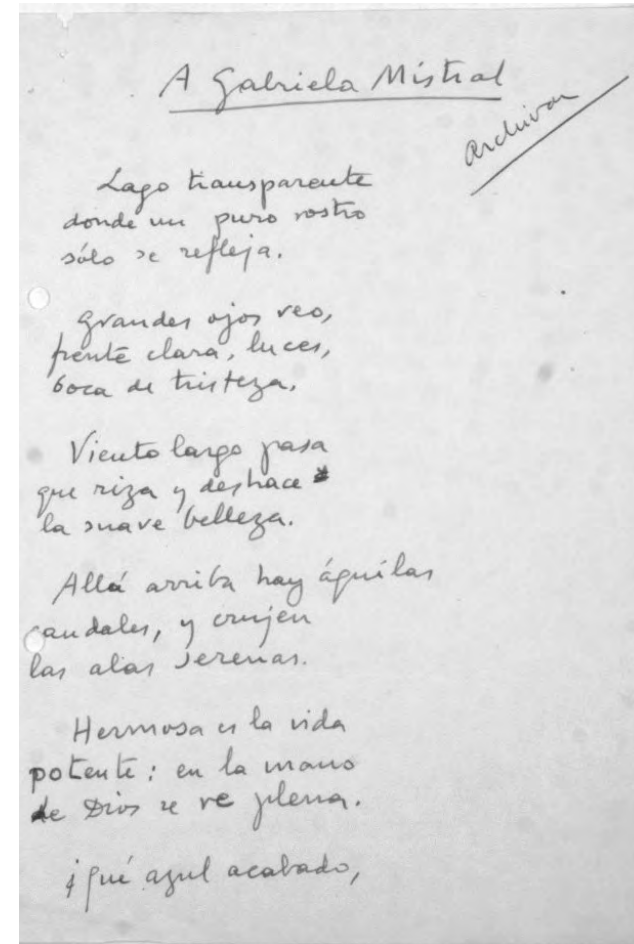 A Gabriela Mistral
Archivar
Lago transparente
donde un puro rostro
sólo se refleja.
Grandes ojos veo,
frente clara, luces,
boca de tristeza.
Viento largo pasa
que riza y deshace
la suave belleza.
Allá arriba hay águilas
caudales, y crujen
las alas serenas.
Hermosa es la vida
potente: en la mano
de Dios se ve plena.
¡Qué azul acabado,